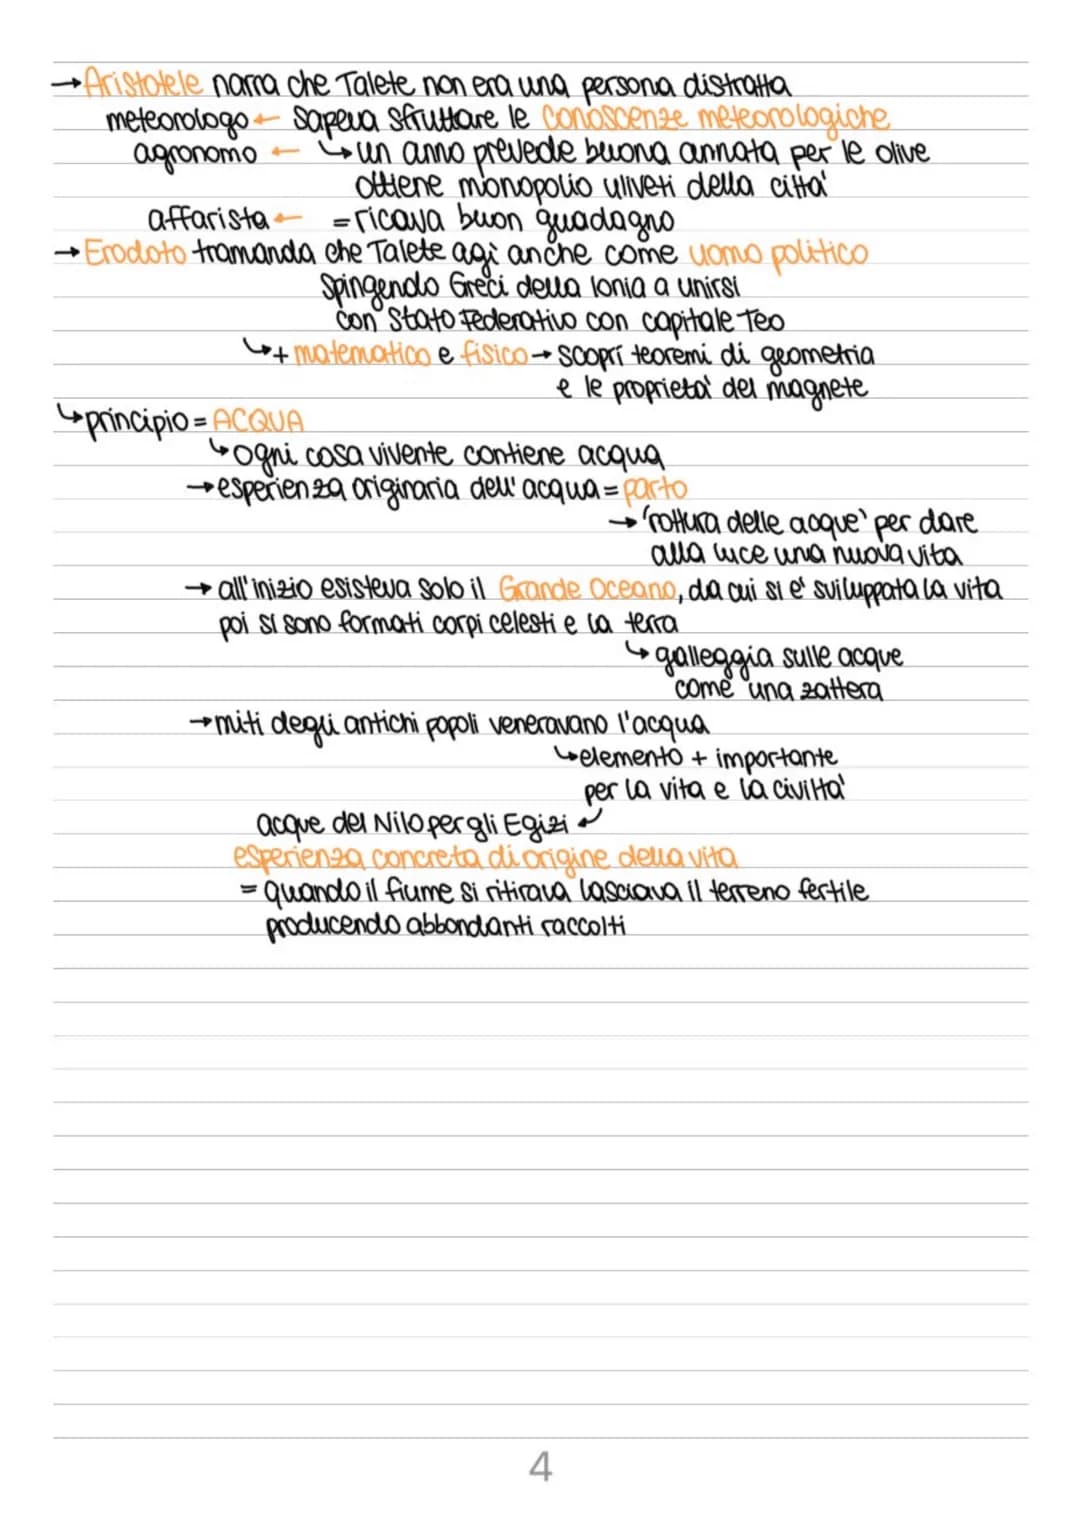 → Aristotele narra che Talete non era una persona distratta
meteorologo ← sapeva sfruttare le conoscenze meteorologiche
agronomo ← ↳ un anno prevede buona annata per le olive
ottiene monopolio uliveti della citta'
affarista ← = ricava buon guadagno
→ Erodoto tramanda che Talete agì anche come uomo politico
spingendo Greci della Ionia a unirsi
con Stato Federativo con capitale Teo
↳ + matematico e fisico → scoprì teoremi di geometria
e le proprieta' del magnete
↳ principio = ACQUA
↳ ogni cosa vivente contiene acqua
→ esperienza originaria dell'acqua = parto
→ 'rottura delle acque' per dare
alla luce una nuova vita
→ all'inizio esisteva solo il Grande Oceano, da cui si e' sviluppata la vita
poi si sono formati corpi celesti e la terra
↳ galleggia sulle acque
come una zattera
→ miti degli antichi popoli veneravano l'acqua
↳ elemento + importante
per la vita e la civilta'
acque del Nilo per gli Egizi ↙
esperienza concreta di origine della vita
= quando il fiume si ritirava lasciava il terreno fertile
producendo abbondanti raccolti
4